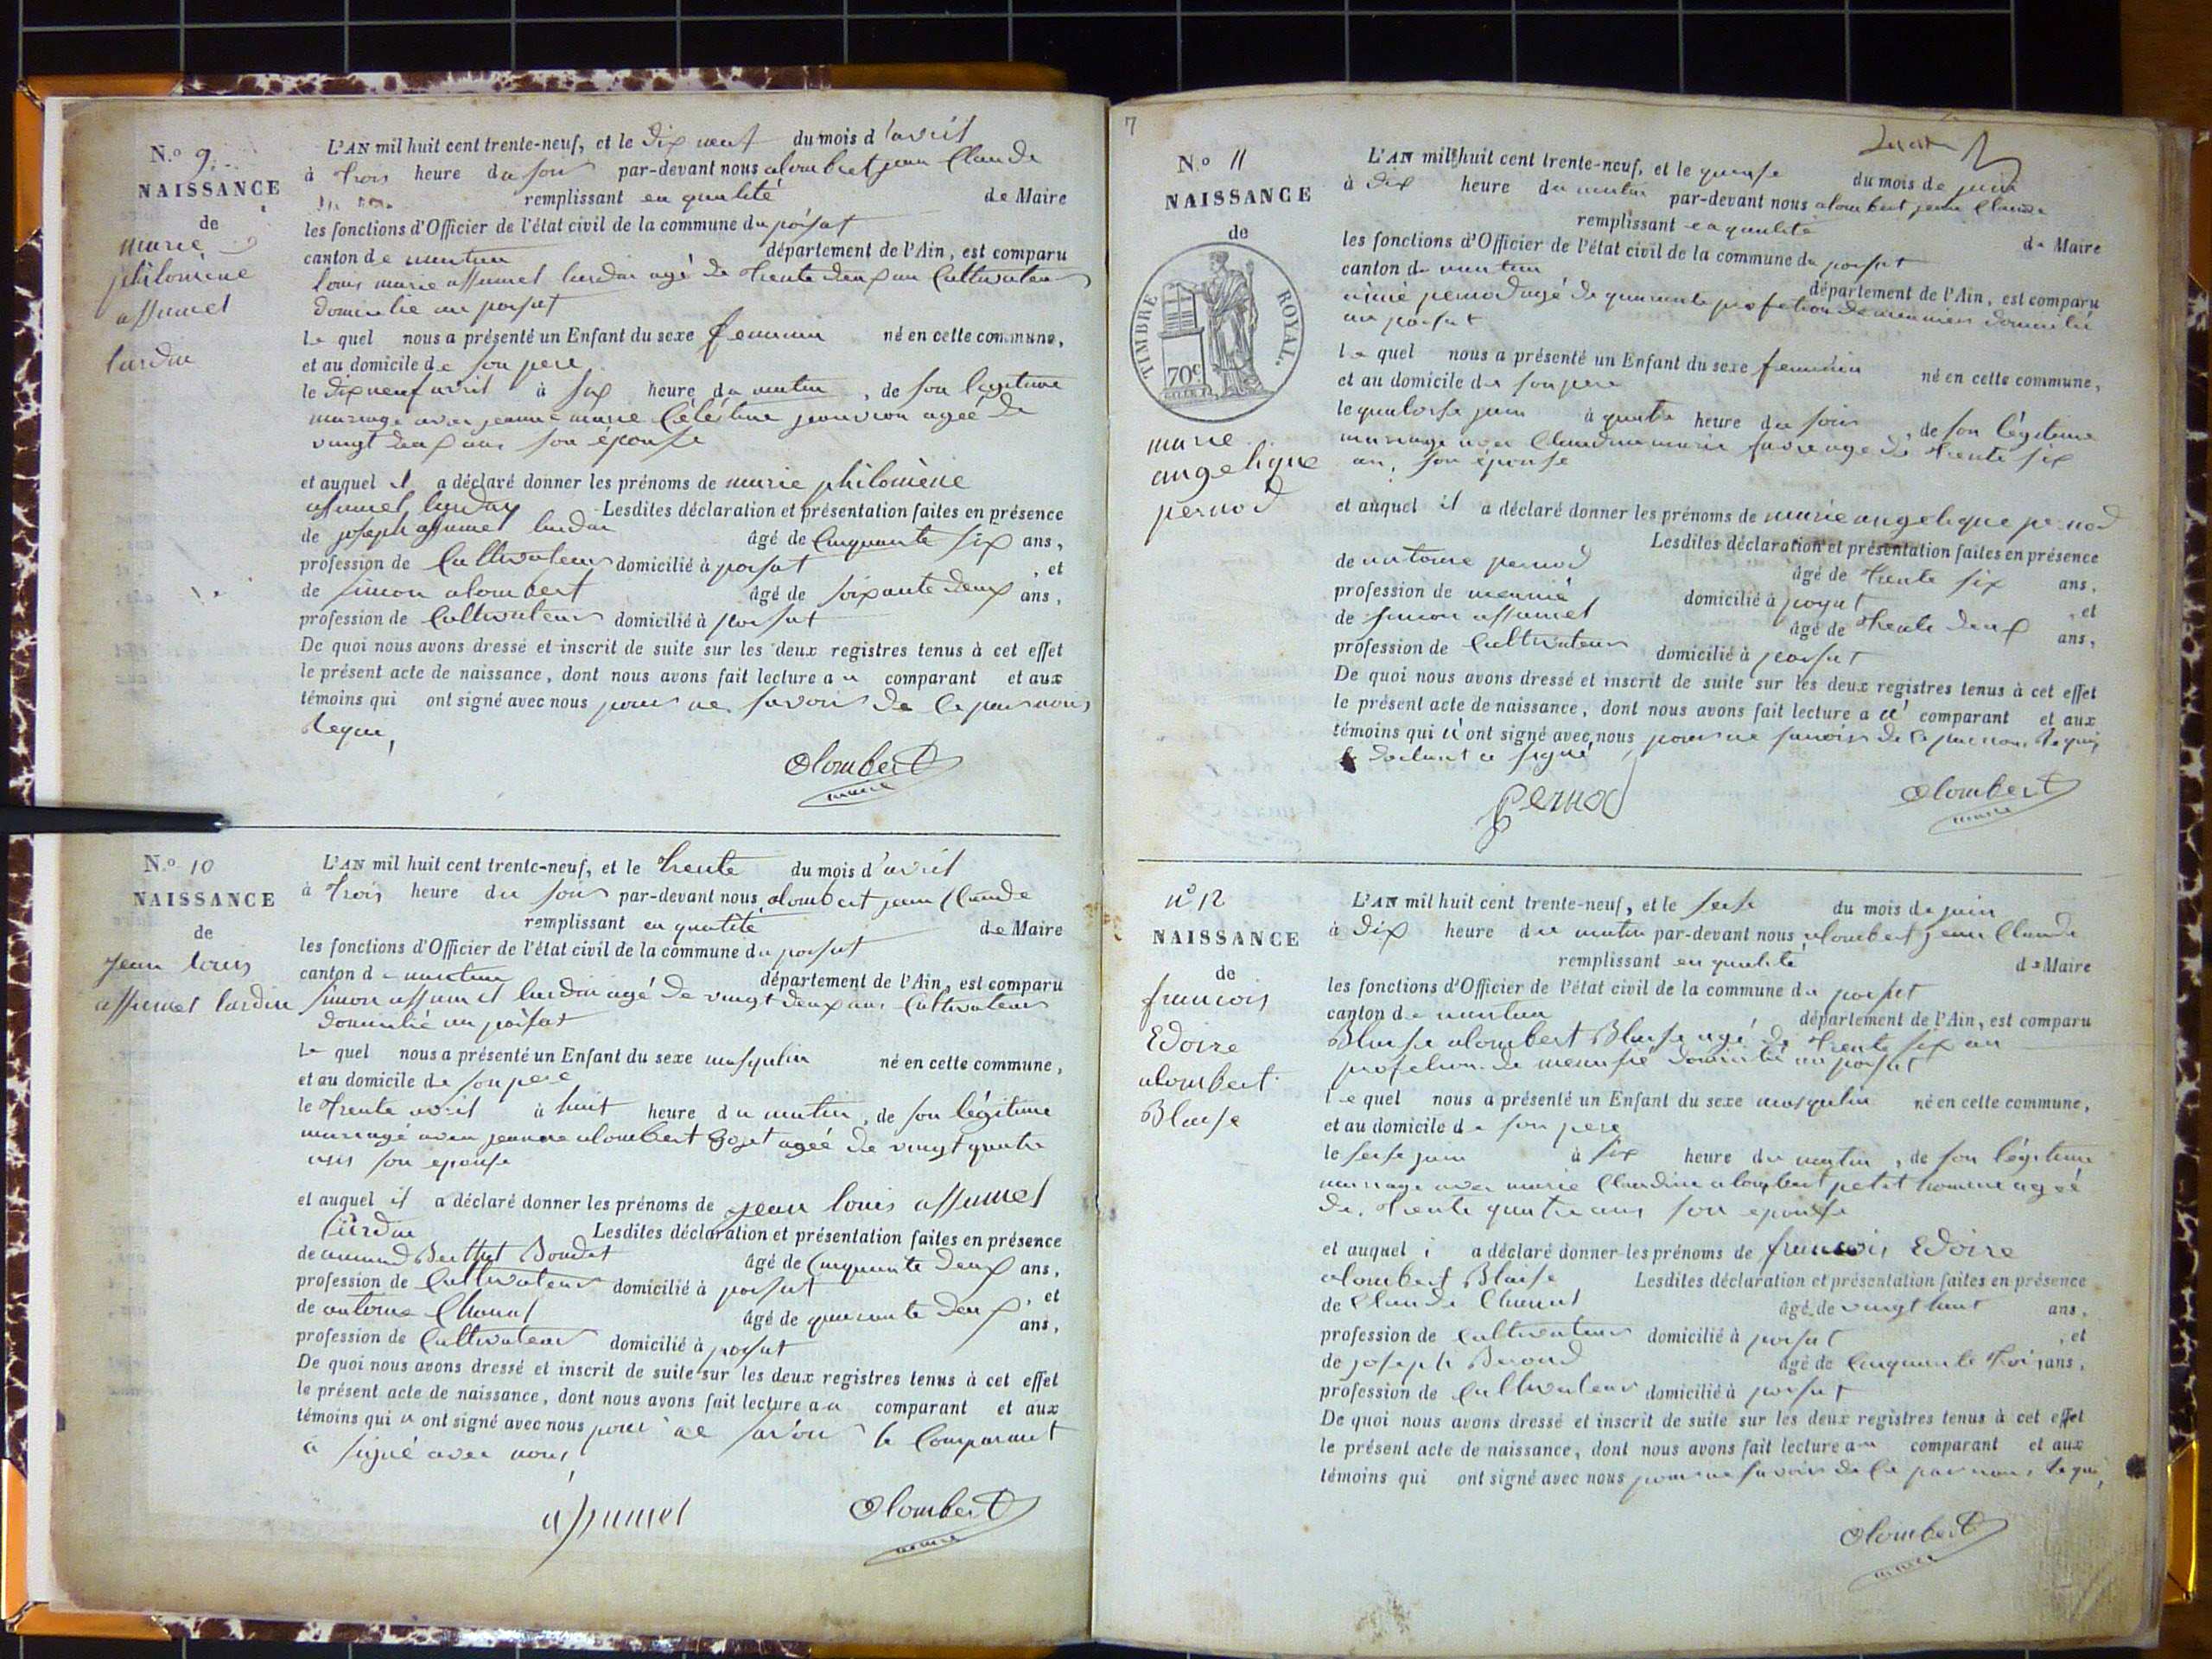 N.° 9.
NAISSANCE
de
marie
philomène
assumel
lurdin
L'AN mil huit cent trente-neuf, et le dix neuf du mois d'avril
à trois heure du soir par-devant nous alombert jean Claude
remplissant en qualité de Maire
les fonctions d'Officier de l'état civil de la commune du poisat
canton de nantua département de l'Ain, est comparu
louis marie assumel lurdin agé de trente deux an Cultivateur
domicilié au poisat
le quel nous a présenté un Enfant du sexe feminin né en cette commune,
et au domicile de son pere
le dix neuf avril à six heure du matin, de son légitime
mariage avec jeanne marie Céléstine jouvion agée de
vingt deux ans son épouse
et auquel il a déclaré donner les prénoms de marie philomène
assumel lurdin Lesdites déclaration et présentation faites en présence
de joseph assumel lurdin âgé de Cinquante six ans,
profession de Cultivateur domicilié à poisat, et
de simon alombert âgé de soixante deux ans,
profession de Cultivateur domicilié à poisat
De quoi nous avons dressé et inscrit de suite sur les deux registres tenus à cet effet
le présent acte de naissance, dont nous avons fait lecture au comparant et aux
témoins qui ont signé avec nous pour ne savoir de ce par nous
requi,
alombert
maire
N.° 10
NAISSANCE
de
jean louis
assumel lurdin
L'AN mil huit cent trente-neuf, et le trente du mois d'avril
à trois heure du soir par-devant nous alombert jean Claude
remplissant en qualité de Maire
les fonctions d'Officier de l'état civil de la commune du poisat
canton de nantua département de l'Ain, est comparu
simon assumel lurdin agé de vingt deux ans Cultivateur
domicilié au poisat
le quel nous a présenté un Enfant du sexe masqulin né en cette commune,
et au domicile de son pere
le trente avril à huit heure du matin, de son légitime
mariagé avec jeanne alombert goget ageé de vingt quatre
ans son epouse
et auquel il a déclaré donner les prénoms de jean louis assumel
lurdin Lesdites déclaration et présentation faites en présence
de armand Berthet Bondet âgé de Cinquante deux ans,
profession de Cultivateur domicilié à poisat, et
de antoine Chanal âgé de quarante deux ans,
profession de Cultivateur domicilié à poisat
De quoi nous avons dressé et inscrit de suite sur les deux registres tenus à cet effet
le présent acte de naissance, dont nous avons fait lecture au comparant et aux
témoins qui n ont signé avec nous pour ne savoir le Comparant
a signé avec nous
assumel
alombert
maire
7
N° 11
NAISSANCE
de
TIMBRE ROYAL.
70c
marie
angelique
pernod
L'AN mil huit cent trente-neuf, et le quinse du mois de juin
à dix heure du matin par-devant nous alombert jean Claude
remplissant en qualité de Maire
les fonctions d'Officier de l'état civil de la commune du poisat
canton de nantua département de l'Ain, est comparu
aimé pernod agé de quarante profetion de meunier domicilié
au poisat
le quel nous a présenté un Enfant du sexe feminin né en cette commune,
et au domicile de son pere
le quatorse juin à quatre heure du soir, de son légitime
mariage avec Claudine marie favre age de trente six
an, son épouse
et auquel il a déclaré donner les prénoms de marie angelique pernod
Lesdites déclaration et présentation faites en présence
de antoine pernod âgé de trente six ans,
profession de meunié domicilié à poisat, et
de simon assumel âgé de trente deux ans,
profession de Cultivateur domicilié à poisat
De quoi nous avons dressé et inscrit de suite sur les deux registres tenus à cet effet
le présent acte de naissance, dont nous avons fait lecture au comparant et aux
témoins qui n'ont signé avec nous pour ne savoir de ce par nous requis
le declarant a signé
pernod
alombert
maire
n° 12
NAISSANCE
de
francois
Edoire
alombert
Blaise
L'AN mil huit cent trente-neuf, et le sese du mois de juin
à dix heure du matin par-devant nous alombert jean Claude
remplissant en qualité de Maire
les fonctions d'Officier de l'état civil de la commune du poisat
canton de nantua département de l'Ain, est comparu
Blaise alombert Blaise agé de trente six an
profetion de menusié domicilié au poisat
le quel nous a présenté un Enfant du sexe masqulin né en cette commune,
et au domicile de son pere
le sese juin à six heure du matin, de son légitime
mariage avec marie Claudine alombert petit homme ageé
de trente quatre ans son epouse
et auquel i a déclaré donner les prénoms de francois Edoire
alombert Blaise Lesdites déclaration et présentation faites en présence
de Claude Chanal âgé de vingt huit ans,
profession de Cultivateur domicilié à poisat, et
de joseph Berod âgé de Cinquante trois ans,
profession de Cultivateur domicilié à poisat
De quoi nous avons dressé et inscrit de suite sur les deux registres tenus à cet effet
le présent acte de naissance, dont nous avons fait lecture au comparant et aux
témoins qui ont signé avec nous pour ne savoir de ce par nous requi,
alombert
maire